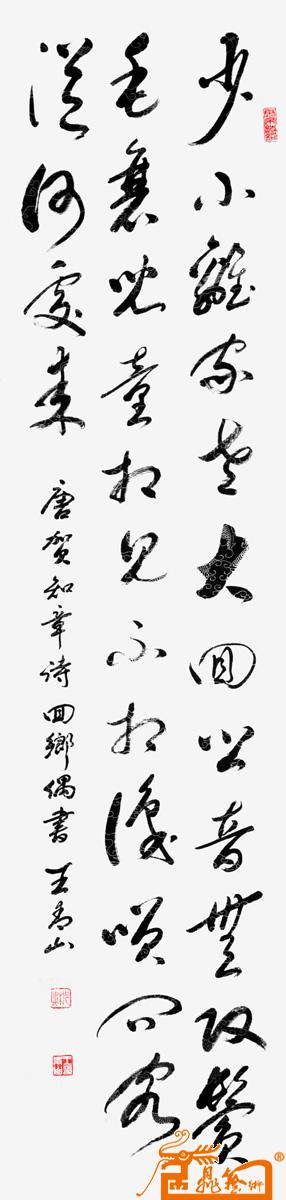 少小離家老大回鄉音無改鬢
毛衰兒童相見不相識笑問客
從何處來
唐賀知章诗回鄉偶書